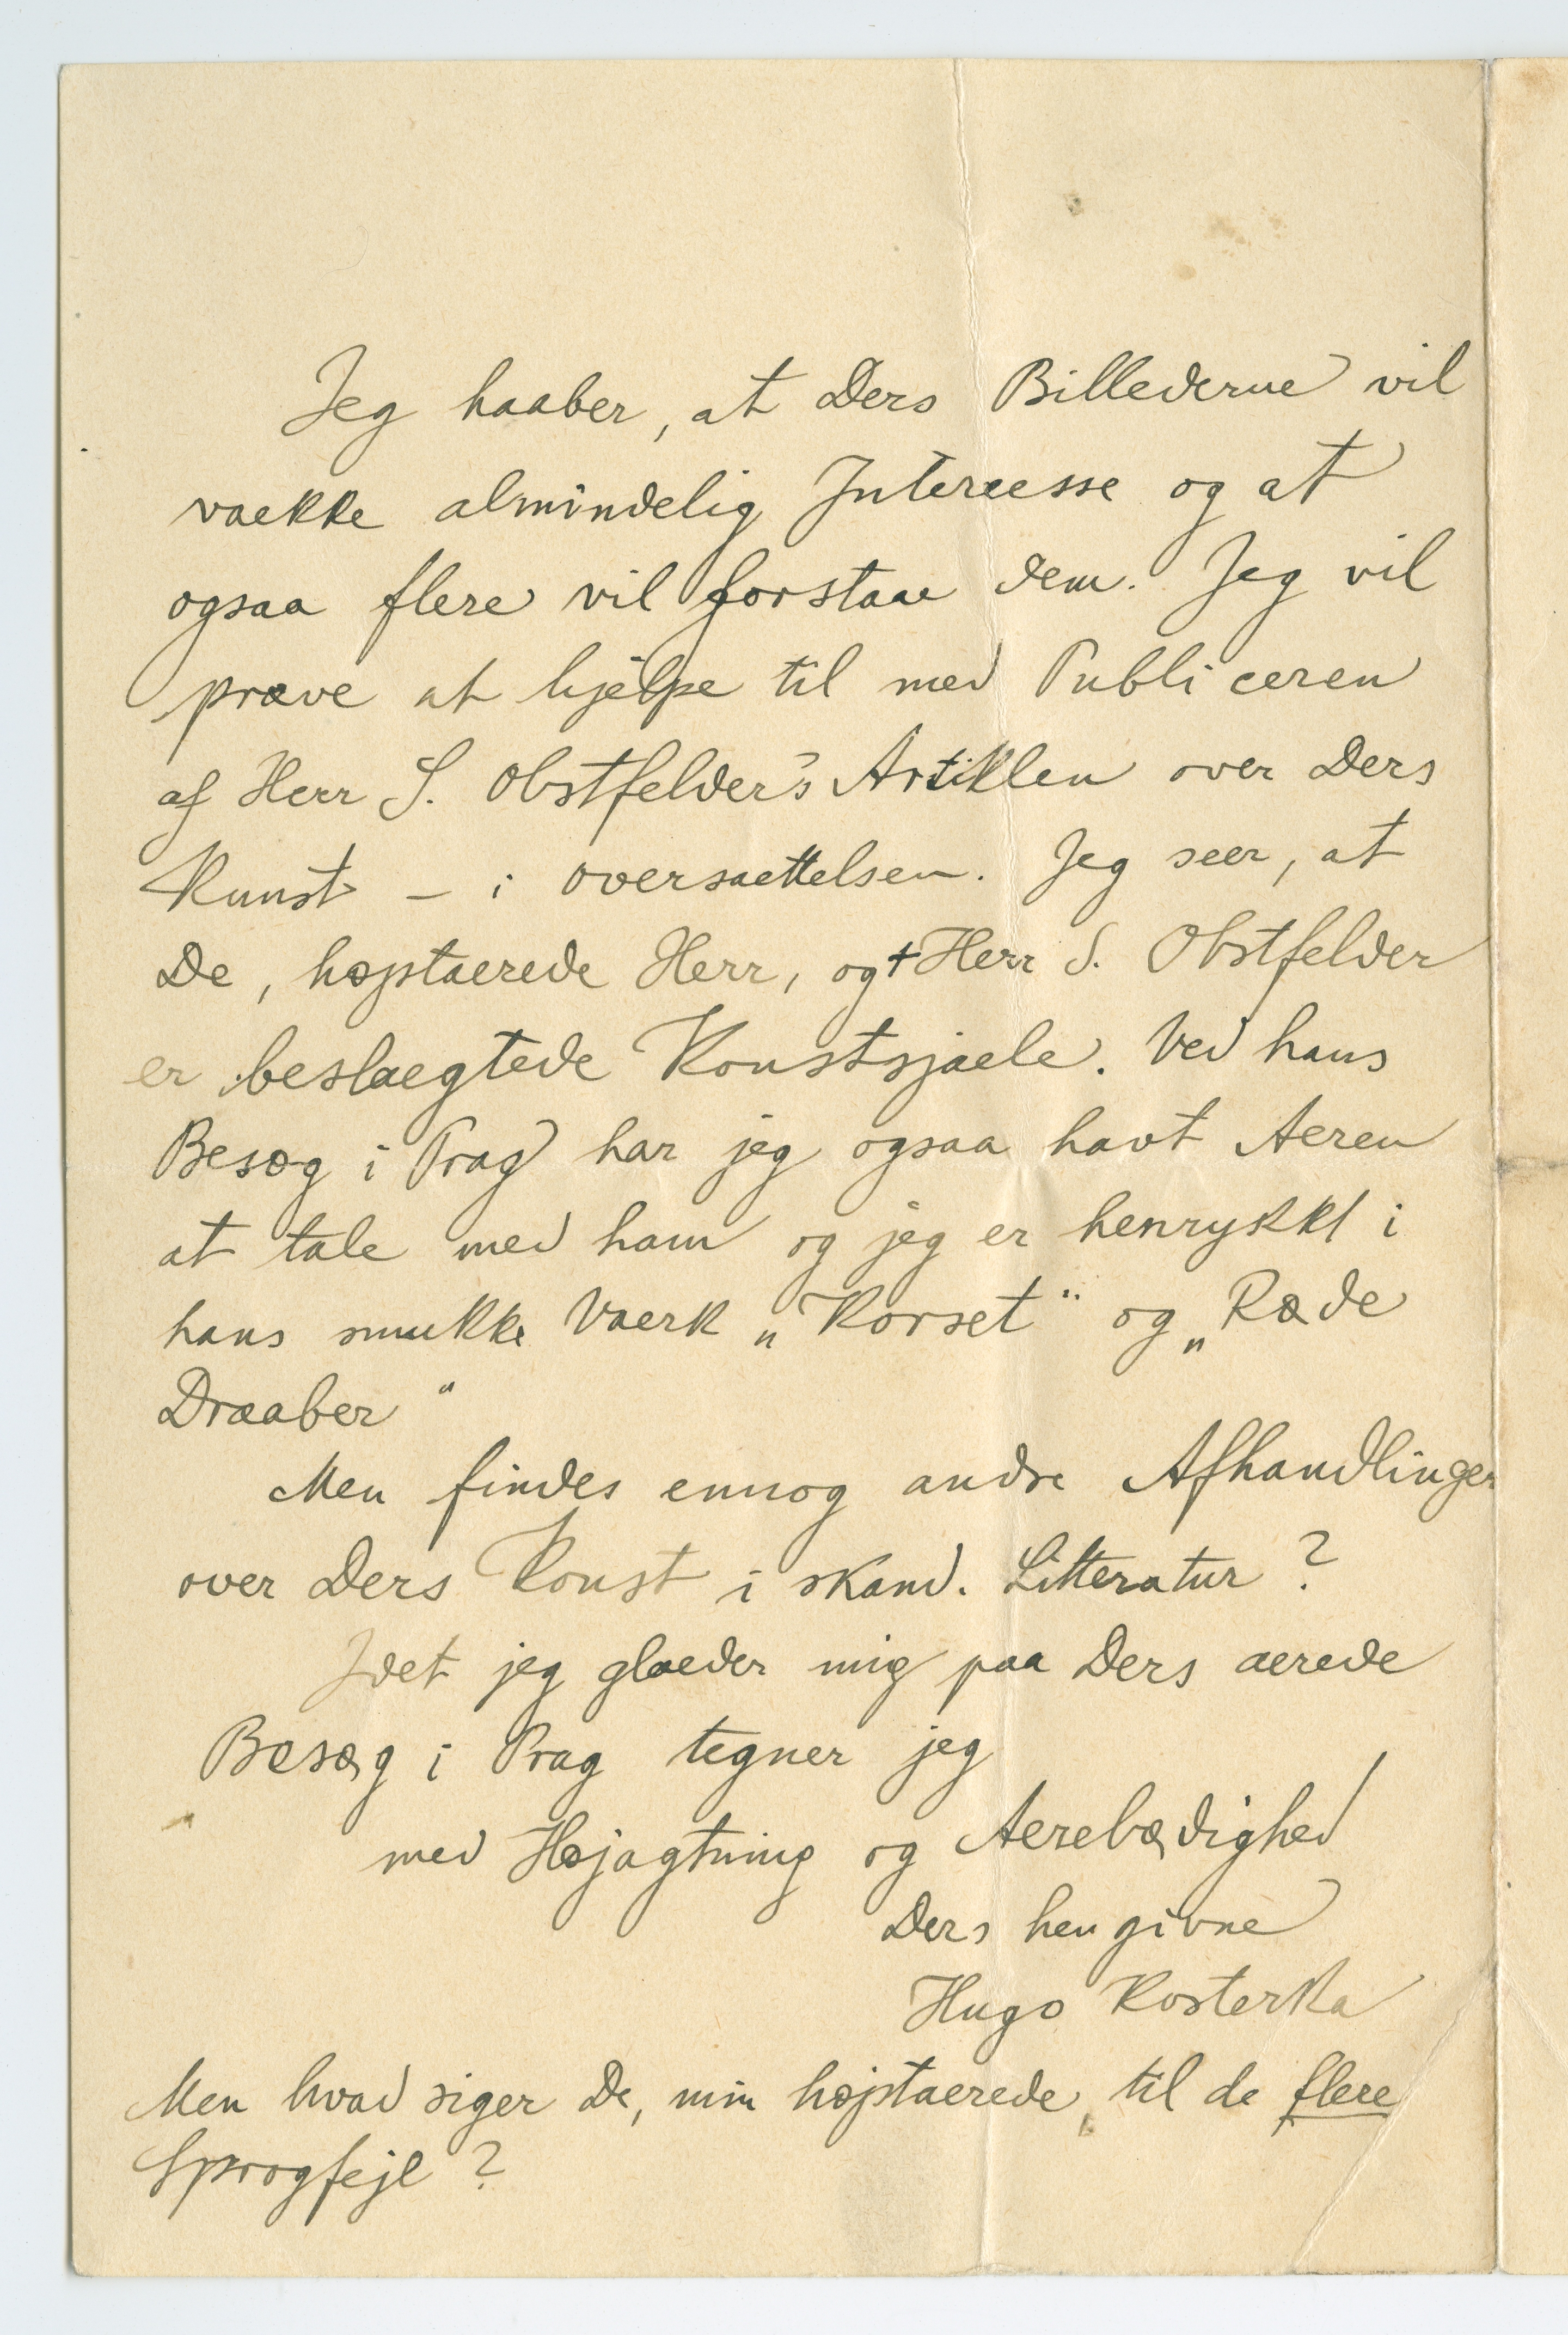 Jeg haaber, at Ders Billederne vil
vaekke almindelig Interesse og at
ogsaa flere vil forstaae dem. Jeg vil
prøve at hjelpe til med Publiceren
af Herr S. Obstfelder's Artiklen over Ders
Kunst – i oversaettelsen. Jeg seer, at
De, højstaerede Herr, og † Herr S. Obstfelder
er beslaegtede Konstsjaele. Ved hans
Besøg i Prag har jeg ogsaa havt Aeren
at tale med ham og jeg er henrykkt i
hans smukke Vaerk „Korset" og „Røde
Draaber"
Men findes ennog andre Afhandlinger
over Ders Konst i skand. Litteratur?
Idet jeg glaeder mig paa Ders aerede
Besøg i Prag tegner jeg
med Højagtning og Aerebødighed
Ders hengivne
Hugo Kosterka
Men hvad siger De, min højstaerede, til de flere
Sprogfejl?